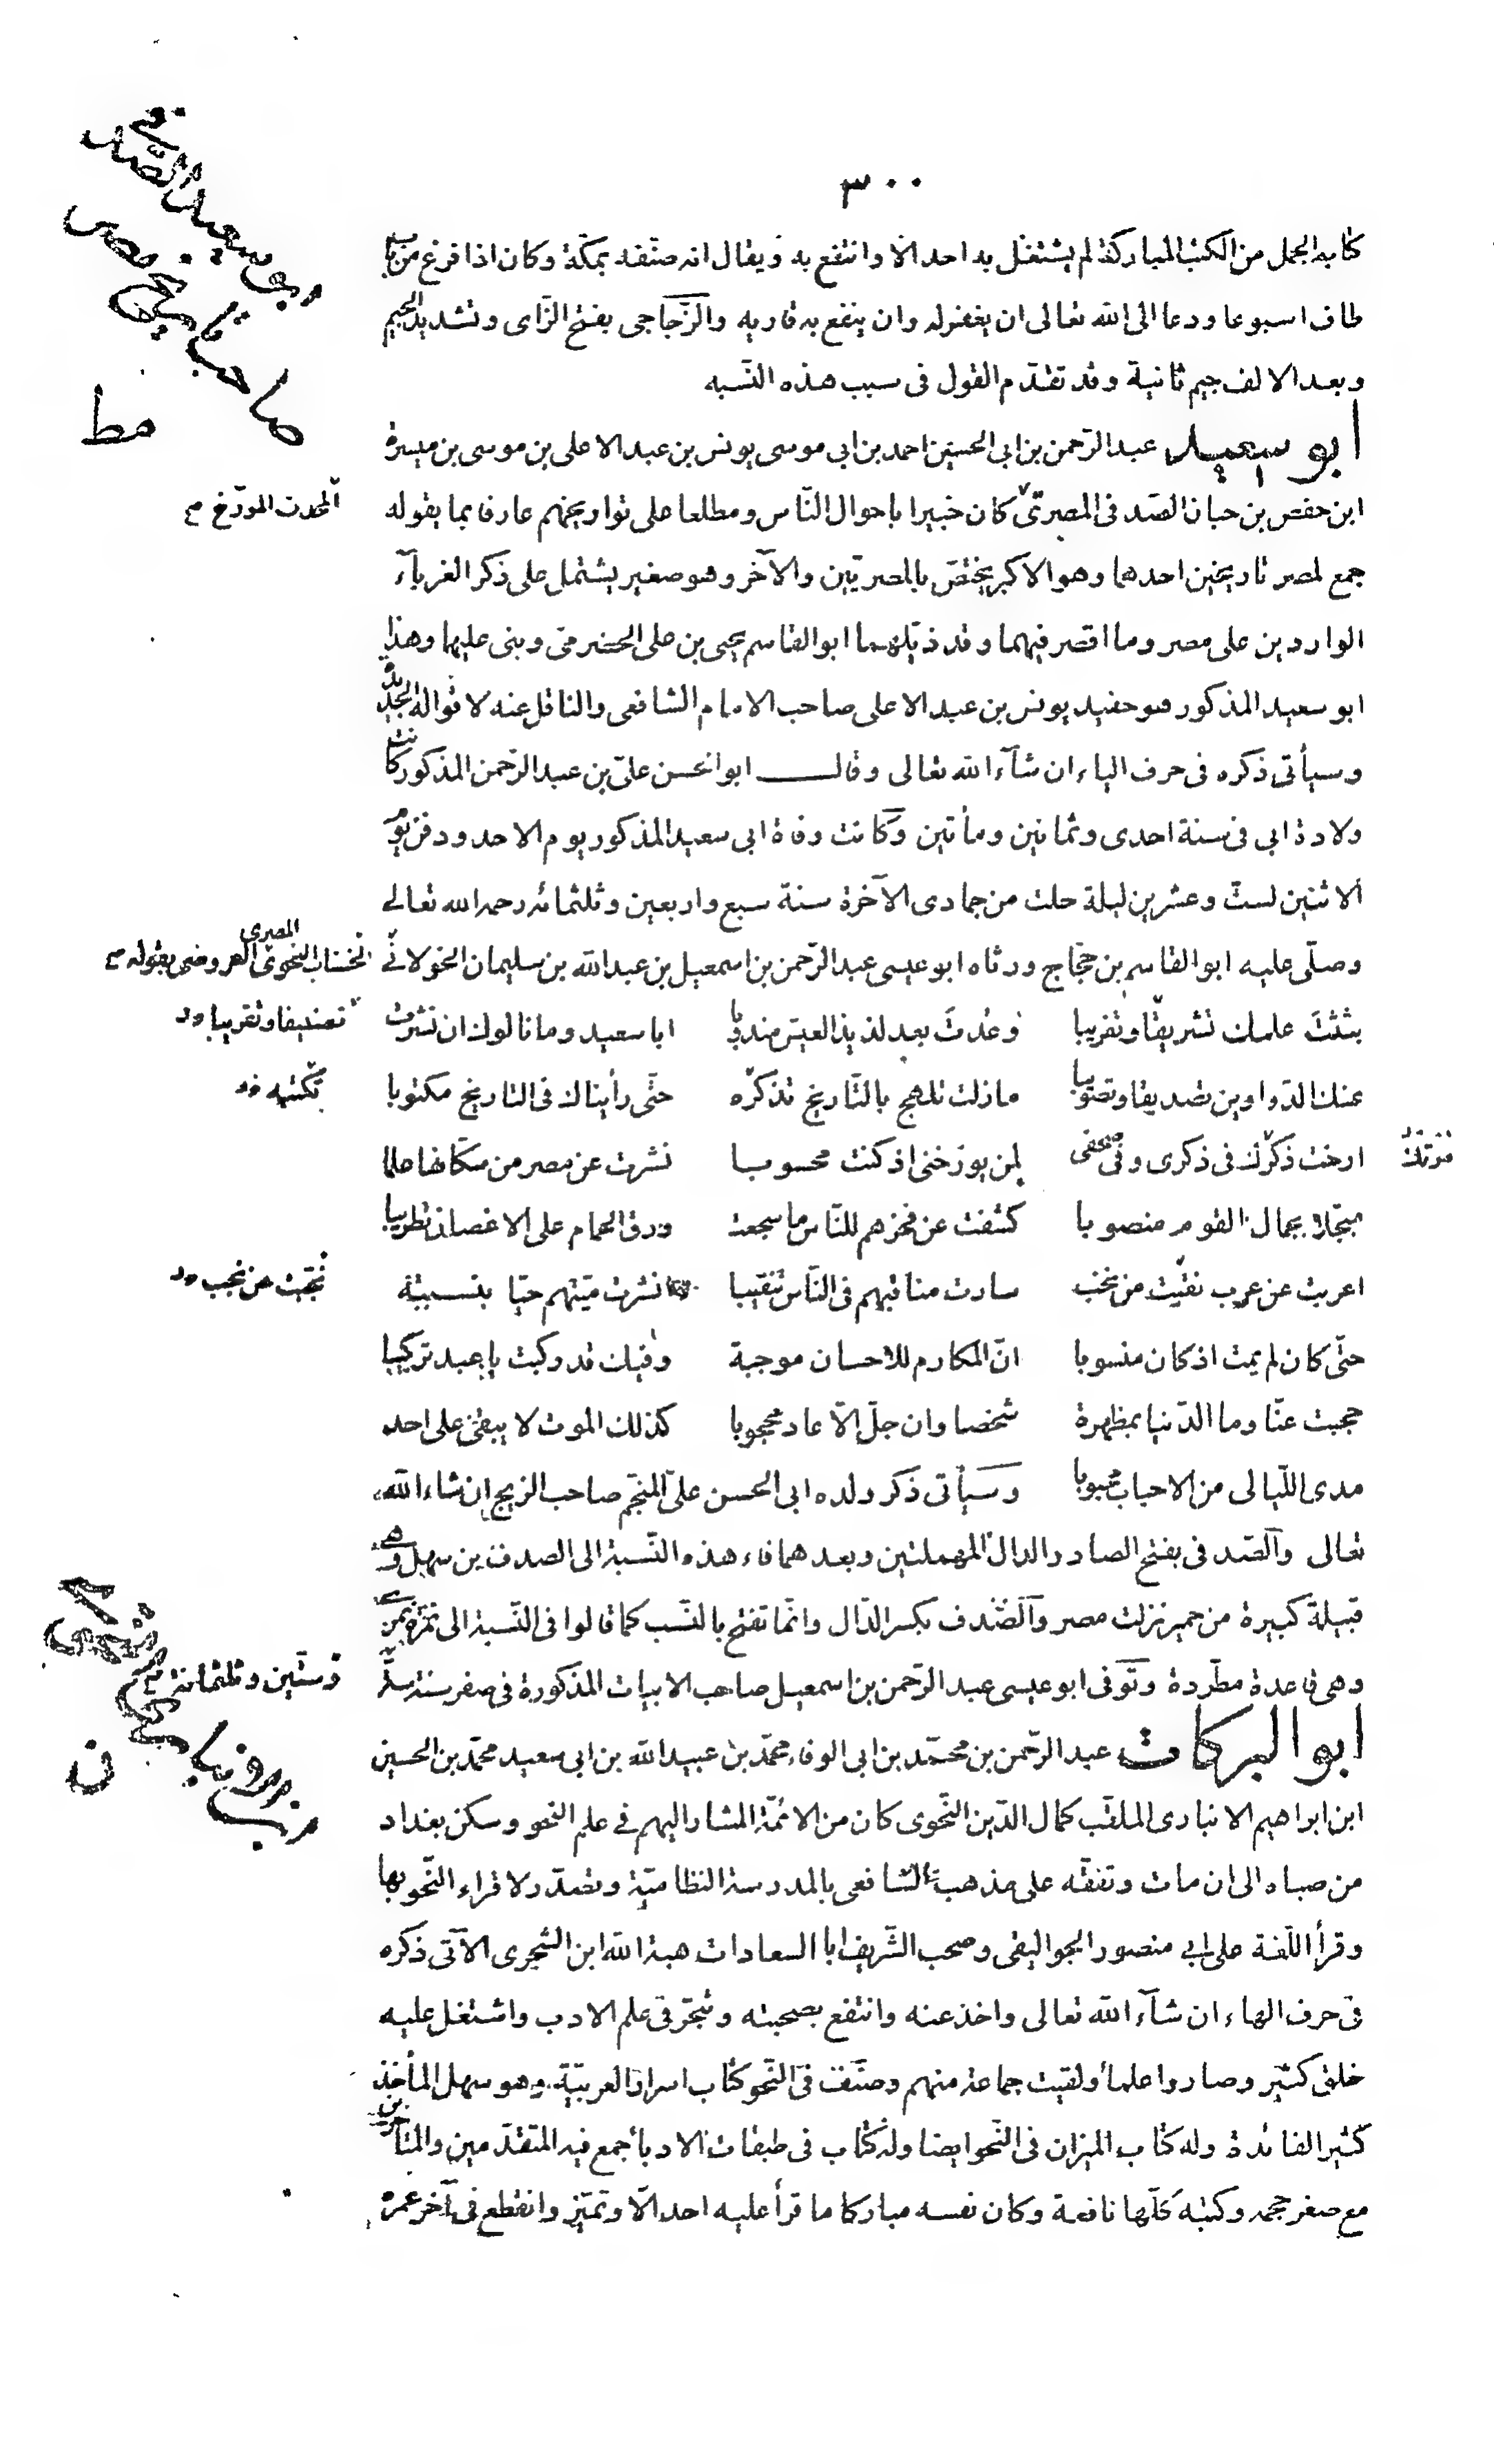 ٣٠٠
كتابه الجمل من الكتب المباركة لم يشتغل به احد الا وانتفع به ويقال انه صنفه بمكة وكان اذا فرغ من باب
طاف اسبوعا ودعا الى الله تعالى ان يغفر له وان ينفع به قاريه والزجاجى بفتح الزاى وتشديد الجيم
وبعد الالف جيم ثانية وقد تقدم القول فى سبب هذه النسبه
ابو سعيد عبد الرحمن بن ابى الحسين احمد بن ابى موسى يونس بن عبد الاعلى بن موسى بن ميسرة
ابن حفص بن حبان الصدفى المصرى كان خبيرا باحوال الناس ومطلعا على تواريخهم عارفا بما يقوله
المحدث المورخ صح
جمع لمصر تاريخين احدهما وهو الاكبر يختص بالمصريين والآخر وهو صغير يشتمل على ذكر الغرباء
الواردين على مصر وما اقصر فيهما وقد ذيلهما ابو القاسم يحيى بن على الحضرمى وبنى عليهما وهذا
ابو سعيد المذكور هو حفيد يونس بن عبد الاعلى صاحب الامام الشافعى والناقل عنه لاقواله الجديدة
وسيأتى ذكره فى حرف الياء ان شاء الله تعالى وقال ابو الحسن على بن عبد الرحمن المذكور كانت
ولادة ابى فى سنة احدى وثمانين ومأتين وكانت وفاة ابى سعيد المذكور يوم الاحد ودفن يوم
الاثنين لست وعشرين ليلة خلت من جمادى الآخرة سنة سبع واربعين وثلثمائه رحمه الله تعالى
وصلى عليه ابو القاسم بن حجاج ورثاه ابو عيسى عبد الرحمن بن اسمعيل بن عبد الله بن سليمان الخولانى
الخشاب النحوى المصرى العروضى بقوله صح
بثثت علمك تشريقا وتغريبا وعدت بعد لذيذ العيش مندوبا ابا سعيد وما نالوك ان نشرت
تصنيفا وتقريبا
عنك الدواوين تصديقا وتصويبا مازلت تلهج بالتاريخ تذكره حتى رأيناك فى التاريخ مكتوبا
تكتبه
ارخت ذكرك فى ذكرى وفى صحفى لمن يورخنى اذ كنت محسوبا نشرت عن مصر من سكانها علما
مبجلا بجمال القوم منصوبا كشفت عن فخرهم للناس ما سجعت ورق الحمام على الاغصان تطريبا
اعربت عن عرب نقبت من نخب سارت مناقبهم فى الناس تنقيبا نشرت ميتهم حيا بنسبته
نجبت عن نجب
حتى كان لم يمت اذ كان منسوبا ان المكارم للاحسان موجبة وفيك قد ركبت يا عبد تركيبا
حجبت عنا وما الدنيا بمظهرة شخصا وان جل الا عاد محجوبا كذلك الموت لا يبقى على احد
مدى الليالى من الاحباب محبوبا وسيأتى ذكر ولده ابى الحسن على المنجم صاحب الزيج ان شاء الله
تعالى والصدفى بفتح الصاد والدال المهملتين وبعدهما فاء هذه النسبة الى الصدف بن سهل وهى
قبيلة كبيرة من حمير نزلت مصر والصدف بكسر الدال وانما تفتح بالنسب كما قالوا فى النسبة الى نمرة نمرى
وهى قاعدة مطردة وتوفى ابو عيسى عبد الرحمن بن اسمعيل صاحب الابيات المذكورة فى صفر سنة ست
وستين وثلثمائة صح
ابو البركات عبد الرحمن بن محمد بن ابى الوفاء محمد بن عبيد الله بن ابى سعيد محمد بن الحسين
ابن ابراهيم الانبارى الملقب كمال الدين النحوى كان من الائمة المشار اليهم فى علم النحو وسكن بغداد
من صباه الى ان مات وتفقه على مذهب الشافعى بالمدرسة النظامية وتصدر لاقراء النحو بها
وقرأ اللغة على ابى منصور الجواليقى وصحب الشريف ابا السعادات هبة الله ابن الشجرى الآتى ذكره
فى حرف الهاء ان شاء الله تعالى واخذ عنه وانتفع بصحبته وتبحر فى علم الادب واشتغل عليه
خلق كثير وصاروا علماء ولقيت جماعة منهم وصنف فى النحو كتاب اسرار العربية وهو سهل المأخذ
كثير الفائدة وله كتاب الميزان فى النحو ايضا وله كتاب فى طبقات الادباء جمع فيه المتقدمين والمتأخرين
مع صغر حجمه وكتبه كلها نافعة وكان نفسه مباركا ما قرأ عليه احد الا وتميز وانقطع فى آخر عمره
ابو سعيد الصدفى
صاحب تاريخ مصر
مط
ن